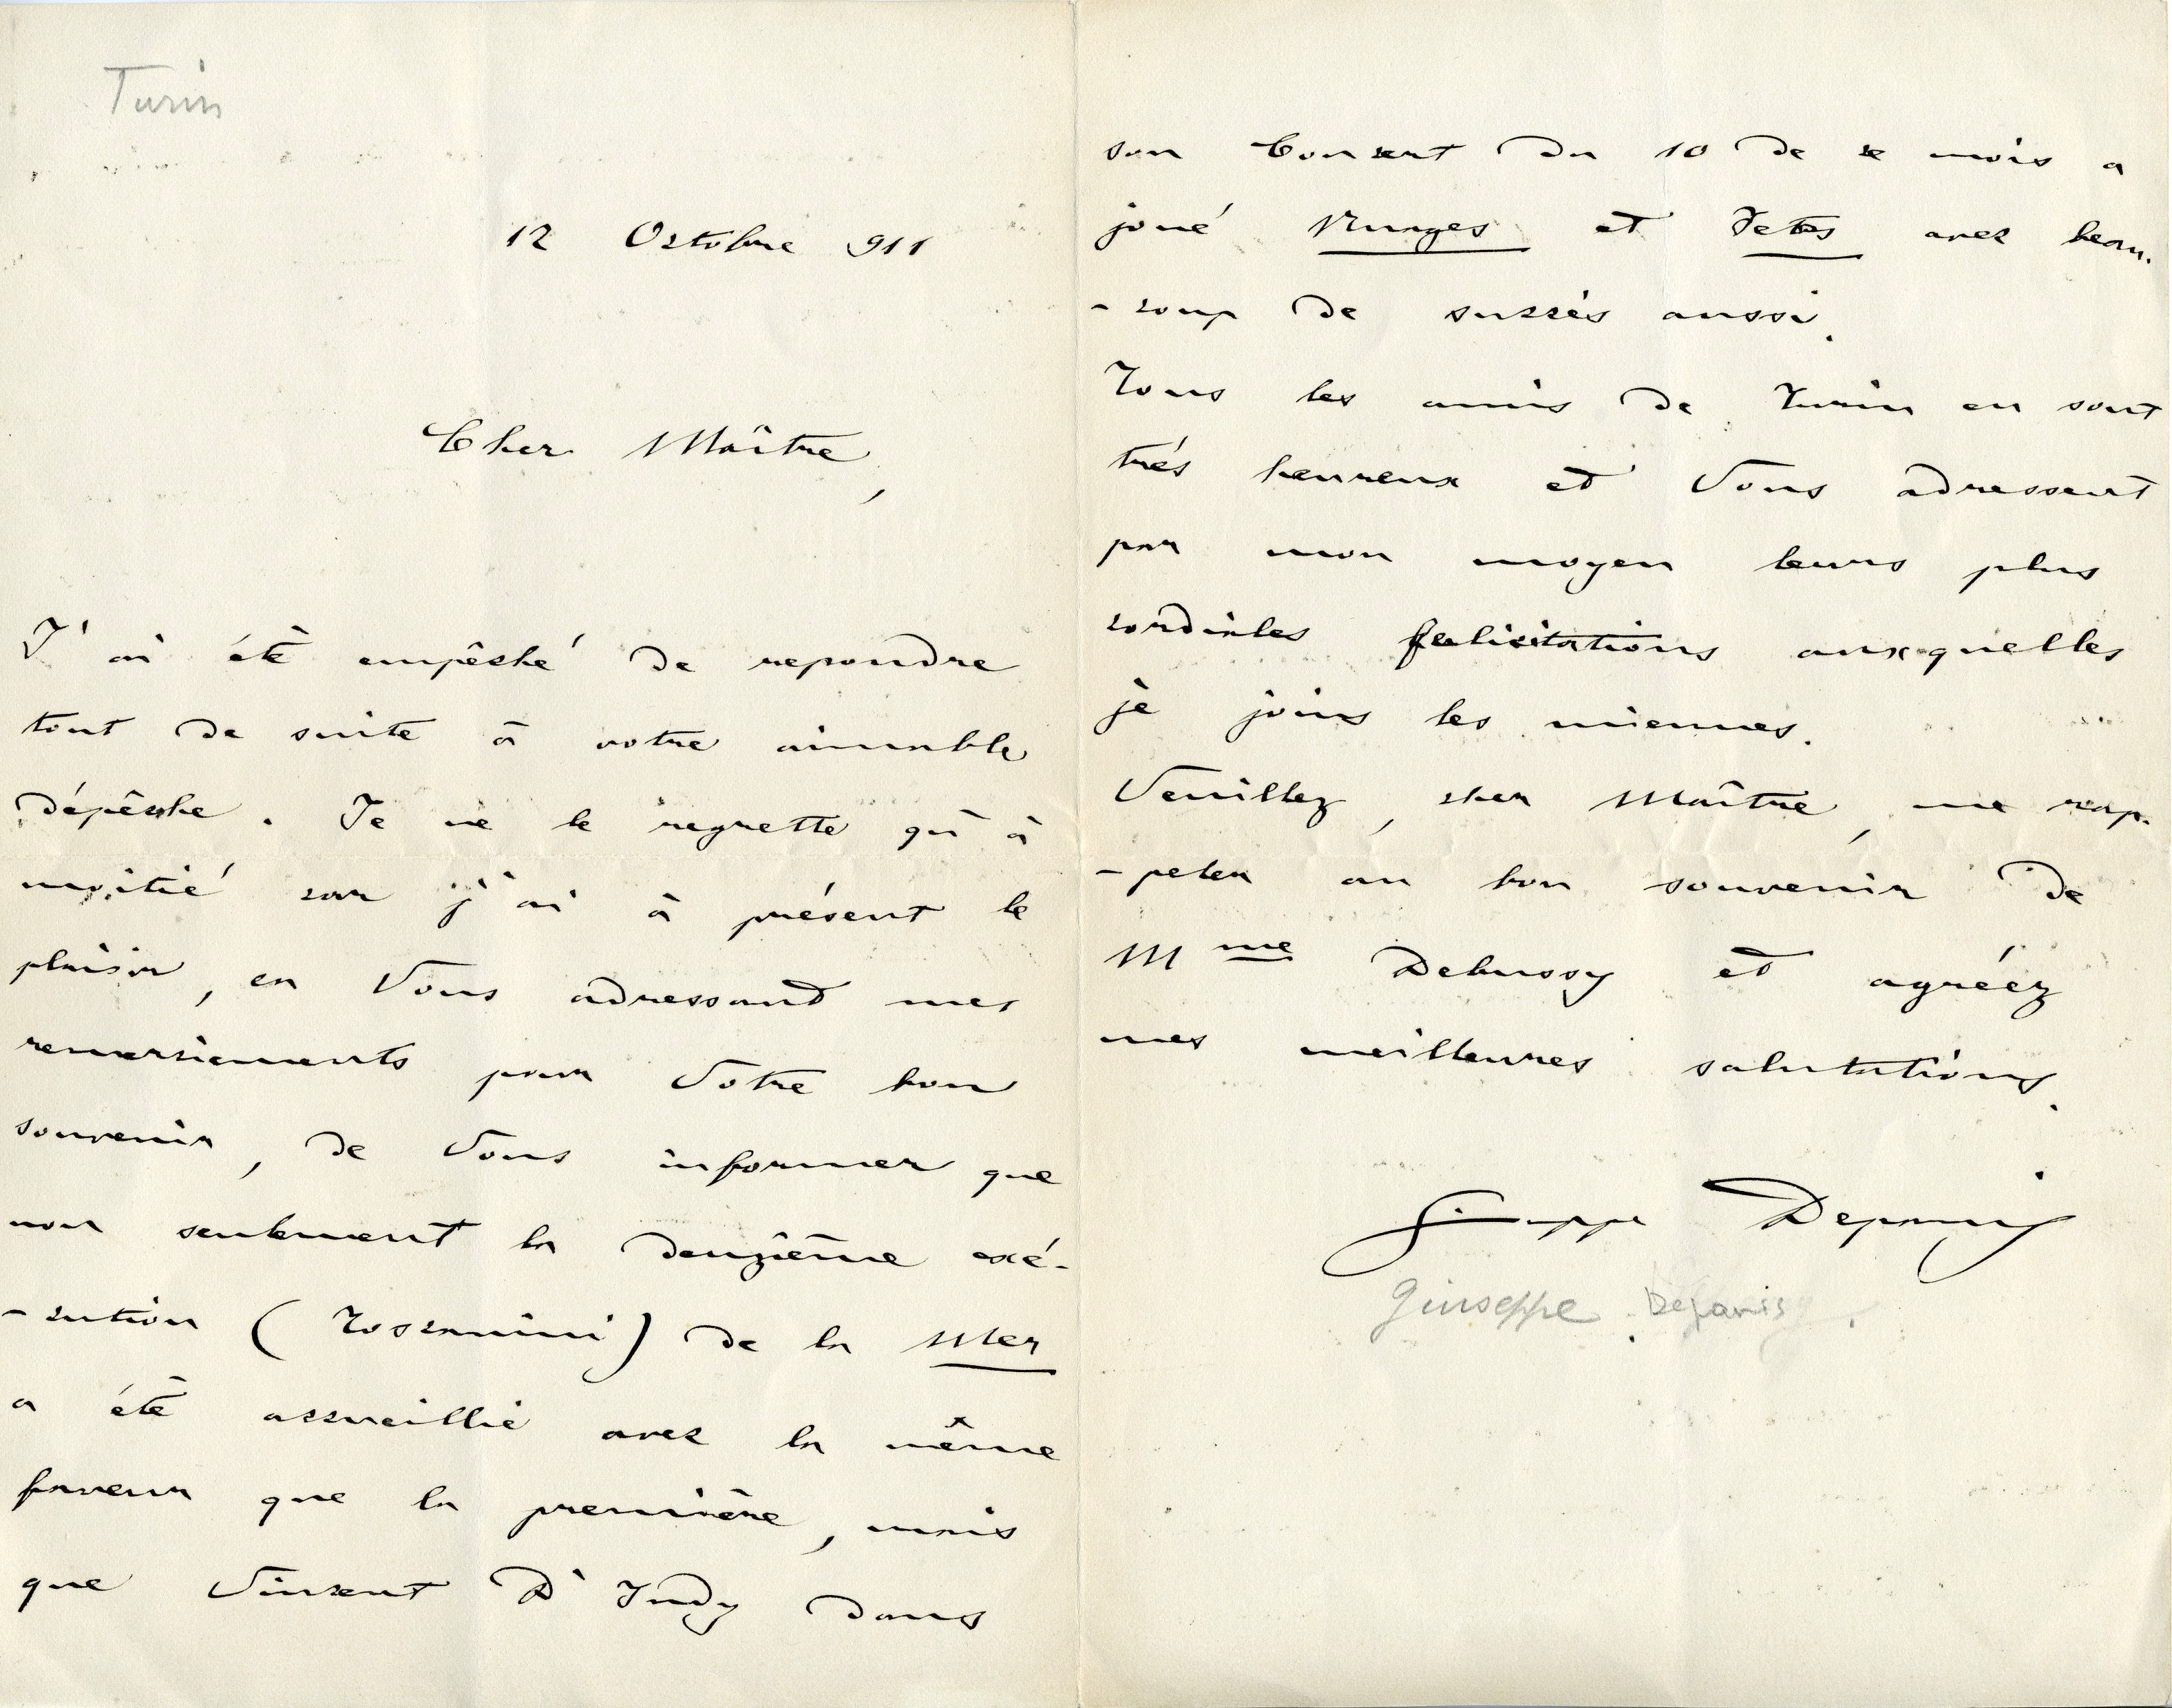 Turin
12 Octobre 911
Cher Maître,
J'ai été empêché de repondre
tout de suite à votre aimable
dépêche. Je ne le regrette qu'à
moitié car j'ai à présent le
plaisir, en Vous adressant mes
remerciements pour Votre bon
souvenir, de Vous informer que
non seulement la deuzième exé-
-cution (Toscanini) de la Mer
a été accueillie avec la même
faveur que la première, mais
que Vincent D'Indy dans
son Concert du 10 de ce mois a
joué Nuages et Fetes avec beau-
-coup de succès aussi.
Tous les amis de Turin en sont
très heureux et Vous adressent
par mon moyen leurs plus
cordiales felicitations auxquelles
je joins les miennes.
Veuillez, cher Maître, me rap-
-peler au bon souvenir de
Mme Debussy et agréez
mes meilleures salutations.
Giuseppe Depanis
Giuseppe Depanis